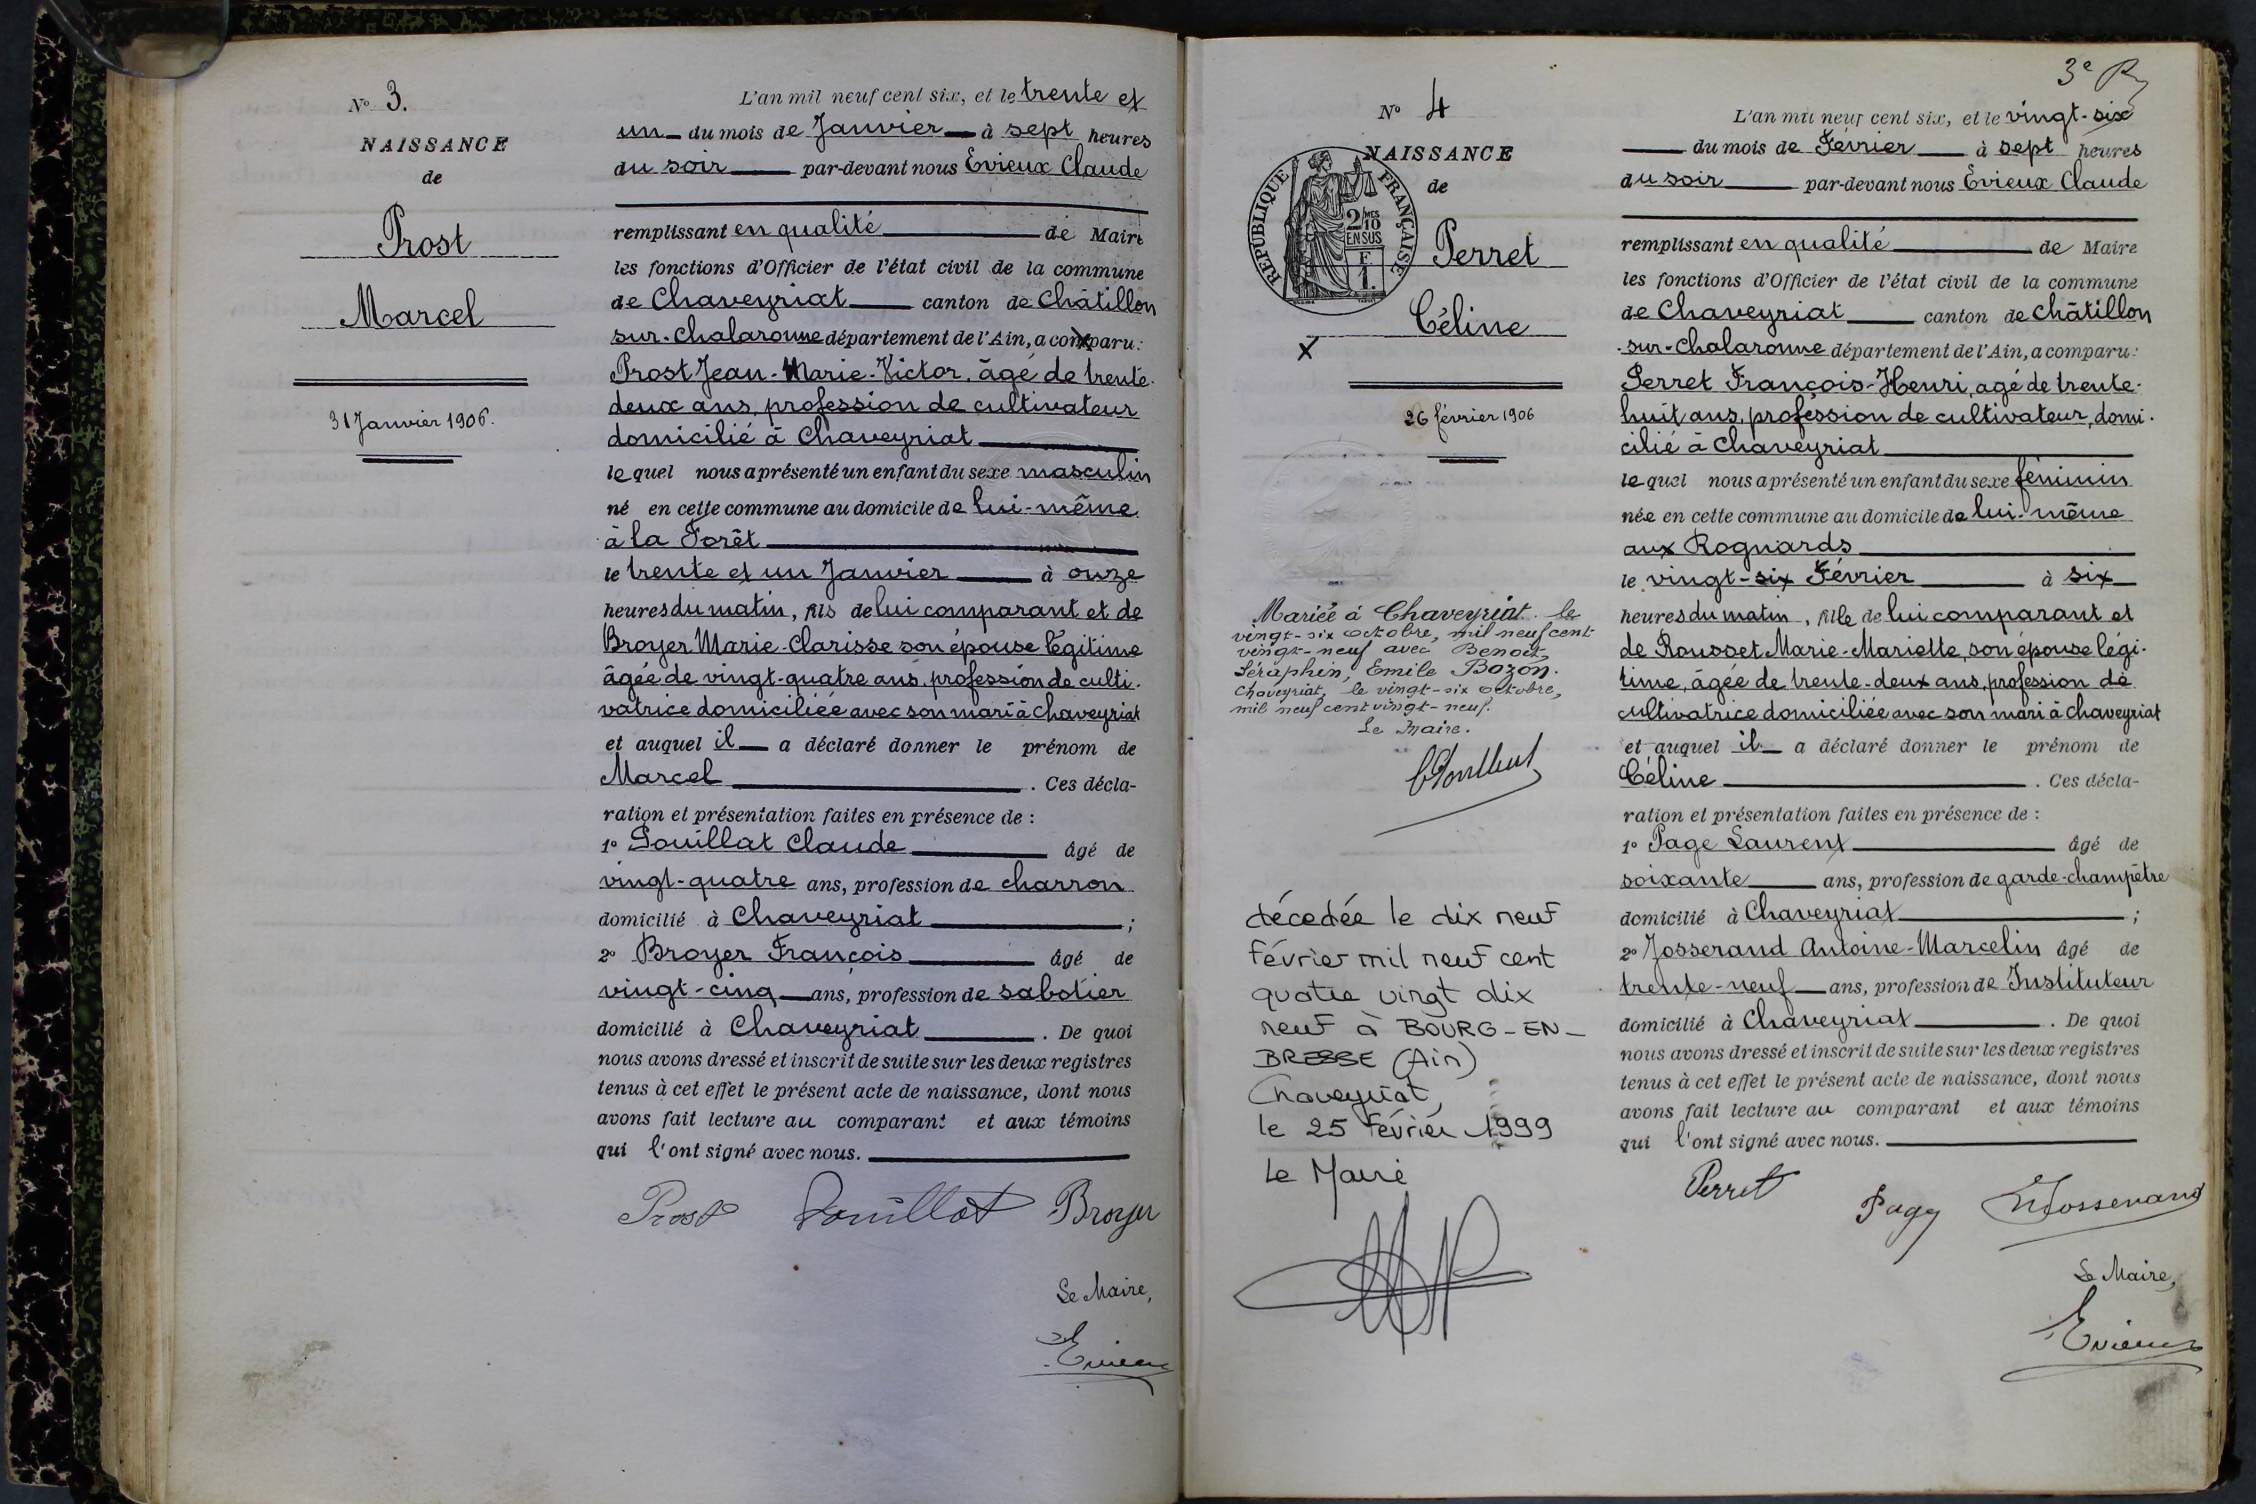 N° 3.
NAISSANCE
de
Prost
Marcel
31 Janvier 1906.
L'an mil neuf cent six, et le trente et
un du mois de Janvier à sept heures
du soir par-devant nous Evieux Claude
remplissant en qualité de Maire
les fonctions d'Officier de l'état civil de la commune
de Chaveyriat canton de Châtillon
sur-Chalaronne département de l'Ain, a comparu:
Prost Jean-Marie-Victor, âgé de trente-
deux ans, profession de cultivateur
domicilié à Chaveyriat
lequel nous a présenté un enfant du sexe masculin
né en cette commune au domicile de lui-même
à la Forêt
le trente et un Janvier à onze
heures du matin, fils de lui comparant et de
Broyer Marie-Clarisse son épouse légitime
âgée de vingt-quatre ans, profession de culti-
vatrice domiciliée avec son mari à Chaveyriat
et auquel il a déclaré donner le prénom de
Marcel. Ces décla-
ration et présentation faites en présence de :
1° Pouillat Claude âgé de
vingt-quatre ans, profession de charron
domicilié à Chaveyriat ;
2° Broyer François âgé de
vingt-cinq ans, profession de sabotier
domicilié à Chaveyriat. De quoi
nous avons dressé et inscrit de suite sur les deux registres
tenus à cet effet le présent acte de naissance, dont nous
avons fait lecture au comparant et aux témoins
qui l'ont signé avec nous.
Prost Pouillat Broyer
Le Maire,
Evieux
3e
N° 4
NAISSANCE
de
RÉPUBLIQUE FRANÇAISE
2/10 MES
EN SUS
F.
1.
Perret
Céline
X
26 février 1906
Mariée à Chaveyriat le
vingt-six octobre, mil neuf cent
vingt-neuf avec Benoit,
Séraphin, Emile Bozon.
Chaveyriat, le vingt-six octobre,
mil neuf cent vingt-neuf.
Le Maire.
décedée le dix neuf
février mil neuf cent
quatre vingt dix
neuf à BOURG-EN-
BRESSE (Ain)
Chaveyriat,
le 25 Février 1999
Le Maire
L'an mil neuf cent six, et le vingt-six
du mois de Février à sept heures
du soir par-devant nous Evieux Claude
remplissant en qualité de Maire
les fonctions d'Officier de l'état civil de la commune
de Chaveyriat canton de Châtillon
-sur-Chalaronne département de l'Ain, a comparu:
Perret François-Henri, agé de trente-
huit ans, profession de cultivateur, domi-
cilié à Chaveyriat
lequel nous a présenté un enfant du sexe féminin
née en cette commune au domicile de lui-même
aux Rognards
le vingt-six Février à six
heures du matin, fille de lui comparant et
de Rousset Marie-Mariette, son épouse légi-
time, âgée de trente-deux ans, profession de
cultivatrice domiciliée avec son mari à Chaveyriat
et auquel il a déclaré donner le prénom de
Céline. Ces décla-
ration et présentation faites en présence de :
1° Page Laurent âgé de
soixante ans, profession de garde-champêtre
domicilié à Chaveyriat ;
2° Josserand Antoine-Marcelin âgé de
trente-neuf ans, profession de Instituteur
domicilié à Chaveyriat. De quoi
nous avons dressé et inscrit de suite sur les deux registres
tenus à cet effet le présent acte de naissance, dont nous
avons fait lecture au comparant et aux témoins
qui l'ont signé avec nous.
Perret Page Josserand
Le Maire,
Evieux